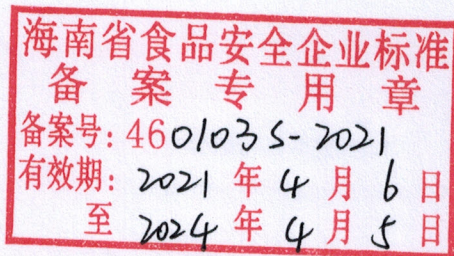 海南省食品安全企业标准
备案专用章
备案号: 460103S-2021
有效期: 2021 年 4 月 6 日
至 2024 年 4 月 5 日